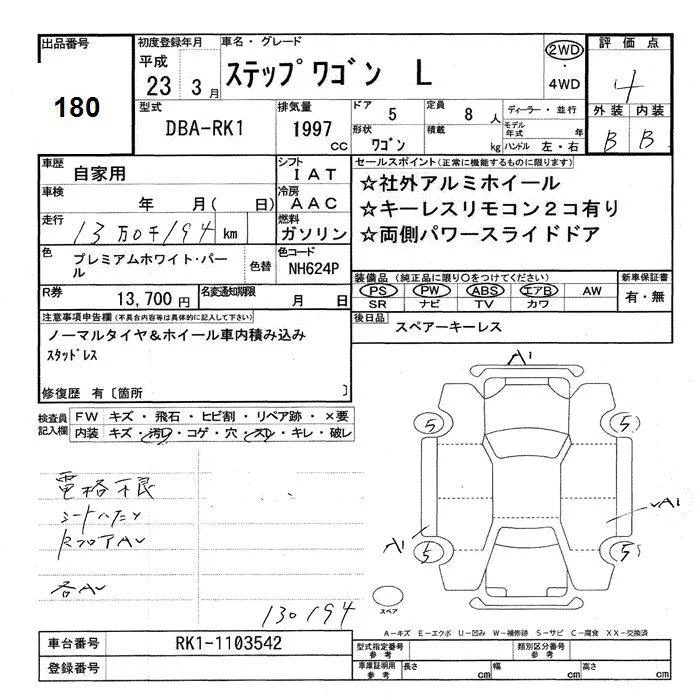 出品番号
180
初度登録年月
平成
23 3月
車名・グレード
ステップワゴン L
2WD
・
4WD
評価点
4
外装 内装
B B
型式
DBA-RK1
排気量
1997 CC
ドア 5
定員 8 人
形状 ワゴン
積載 kg
ディーラー・並行
モデル年式 年
ハンドル 左・右
車歴
自家用
シフト
IAT
車検
年 月( 日)
冷房
AAC
走行
13万0千194 km
燃料
ガソリン
色
プレミアムホワイト・パール
色替
色コード
NH624P
R券
13,700 円
名変通知期限
月 日
セールスポイント(正常に機能するものに限ります)
☆社外アルミホイール
☆キーレスリモコン2コ有り
☆両側パワースライドドア
装備品 (純正品に限り○をつけてください)
PS PW ABS エアB AW
SR ナビ TV カワ
新車保証書
有・無
後日品
スペアーキーレス
注意事項申告欄(不具合内容等は具体的に記入して下さい)
ノーマルタイヤ&ホイール車内積み込み
スタッドレス
修復歴 有〔箇所 〕
検査員記入欄
FW キズ・飛石・ヒビ割・リペア跡・×要
内装 キズ・汚レ・コゲ・穴・スレ・キレ・破レ
電格不良
シートハタン
RフロアAU
各AU
130194
A1
5
5
A1
A1
5
5
スペア
A-キズ E-エクボ U-凹み W-補修跡 S-サビ C-腐食 XX-交換済
車台番号
RK1-1103542
登録番号
型式指定番号
参考
類別区分番号
参考
車庫証明用
参考
長さ cm 幅 cm 高さ cm